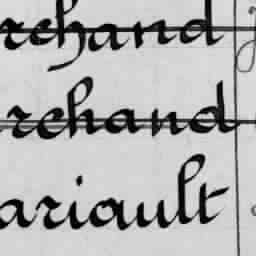 rchand
rchand
ariault